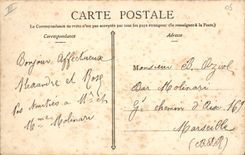 CARTE POSTALE
La Correspondance au recto n'est pas acceptée par tous les pays étrangers (Se renseigner à la Poste)
Correspondance
Adresse
Bonjour Affectueux
Alexandre et Rose
Nos Amitiés à Mr et
Mme Molinari
Monsieur A.
Bar Molinari
Gd chemin d'Aix 169
Marseille